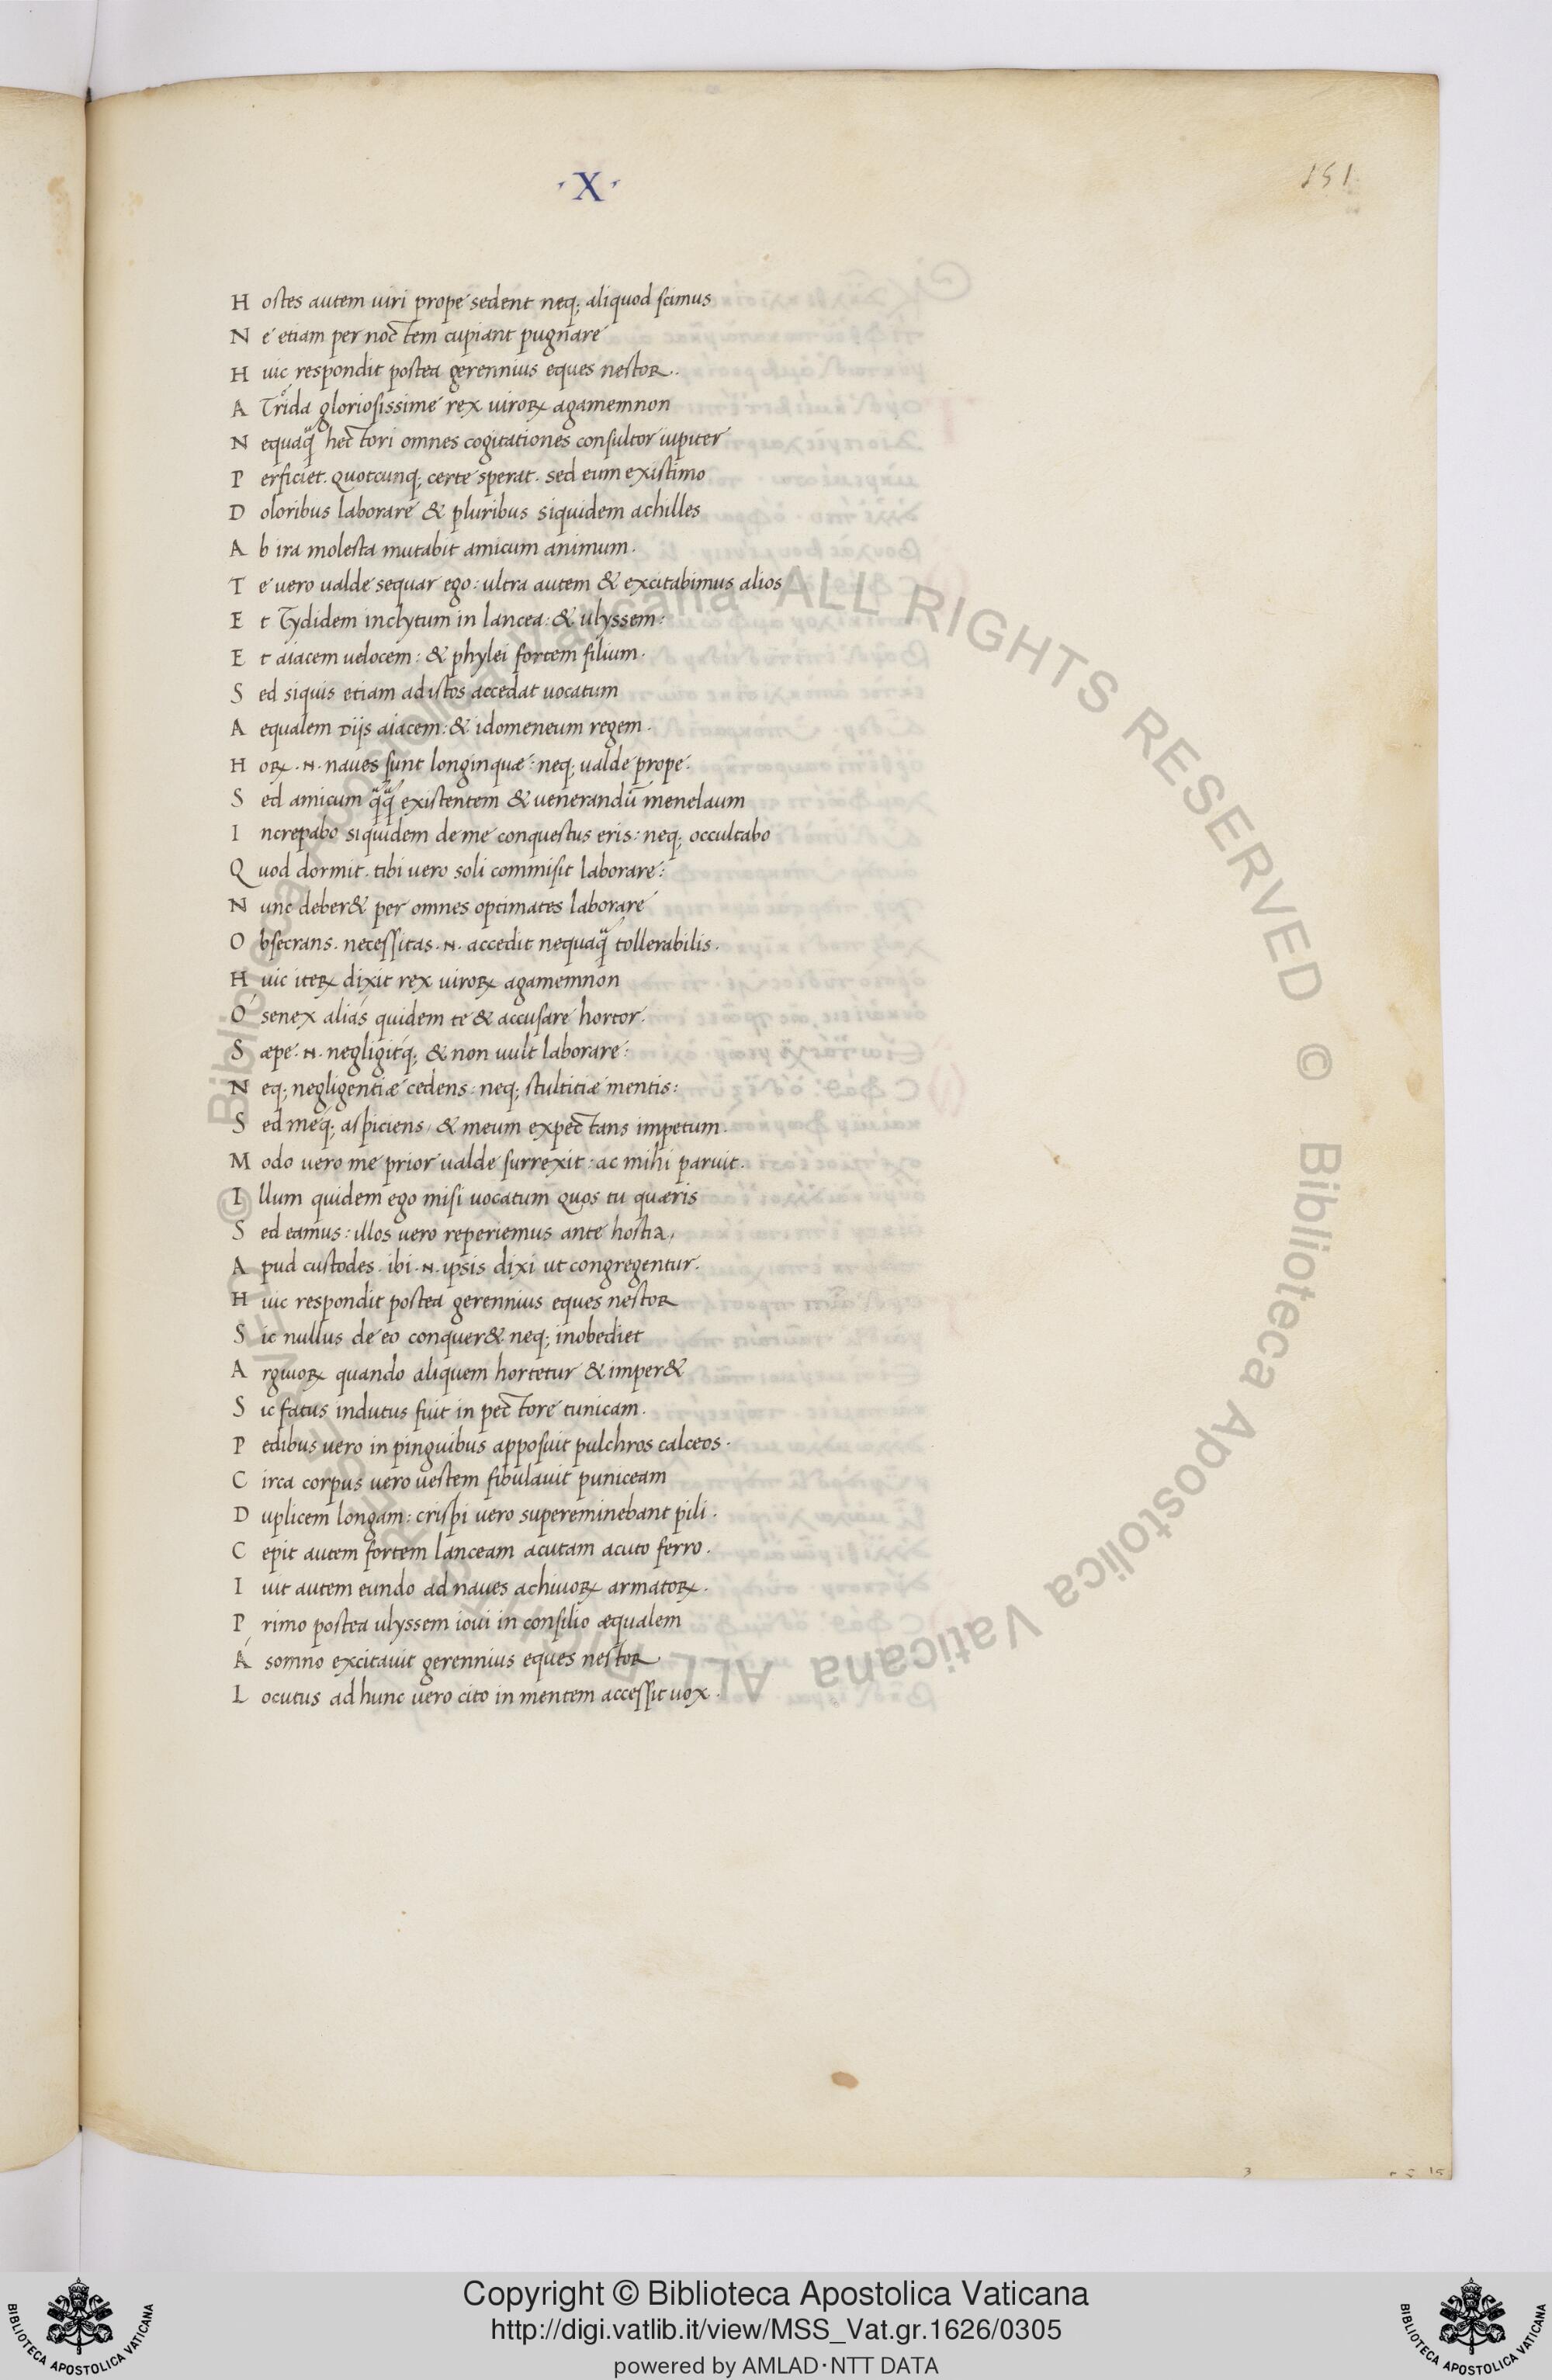 ·X·
151
H ostes autem uiri prope sedent neq; aliquod scimus
N e etiam per noctem cupiant pugnare
H uic respondit postea gerennius eques nestor.
A trida gloriosissime rex uiroꝝ agamemnon
N equaq̃ hectori omnes cogitationes consultor iupiter
P erficiet. quotcunq; certe sperat. sed eum existimo
D oloribus laborare & pluribus siquidem achilles
A b ira molesta mutabit amicum animum.
T e uero ualde sequar ego: ultra autem & excitabimus alios
E t Tydidem inclytum in lancea: & ulyssem:
E t aiacem uelocem: & phylei fortem filium.
S ed siquis etiam ad istos accedat uocatum
A equalem diis aiacem: & idomeneum regem.
H oꝝ .N. naues sunt longinquæ: neq; ualde prope.
S ed amicum q̃q̃ existentem & uenerandū menelaum
I ncrepabo siquidem de me conquestus eris: neq; occultabo
Q uod dormit. tibi uero soli commisit laborare:
N unc deber& per omnes optimates laborare
O bsecrans. necessitas .N. accedit nequaq̃ tollerabilis.
H uic iteꝝ dixit rex uiroꝝ agamemnon
Ó senex aliás quidem te & accusare hortor.
S æpe .N. negligitq́; & non uult laborare:
N eq; negligentiæ cedens: neq; stultitiæ mentis:
S ed meq́; aspiciens, & meum expectans impetum.
M odo uero me prior ualde surrexit: ac mihi paruit.
I llum quidem ego misi uocatum quos tu quæris
S ed eamus: illos uero reperiemus ante hostia,
A pud custodes. ibi .N. ipsis dixi ut congregentur.
H uic respondit postea gerennius eques nestor
S ic nullus de eo conquer& neq; inobediet
A rgiuoꝝ quando aliquem hortetur & imper&
S ic fatus indutus fuit in pectore tunicam.
P edibus uero in pinguibus apposuit pulchros calceos.
C irca corpus uero uestem fibulauit puniceam
D uplicem longam: crispi uero supereminebant pili.
C epit autem fortem lanceam acutam acuto ferro.
I uit autem eundo ad naues achiuoꝝ armatoꝝ.
P rimo postea ulyssem ioui in consilio æqualem
Á somno excitauit gerennius eques nestor
L ocutus ad hunc uero cito in mentem accessit uox.
© Biblioteca Apostolica Vaticana ALL RIGHTS RESERVED
© Biblioteca Apostolica Vaticana ALL RIGHTS RESERVED
BIBLIOTECA APOSTOLICA VATICANA
Copyright © Biblioteca Apostolica Vaticana
http://digi.vatlib.it/view/MSS_Vat.gr.1626/0305
powered by AMLAD·NTT DATA
BIBLIOTECA APOSTOLICA VATICANA